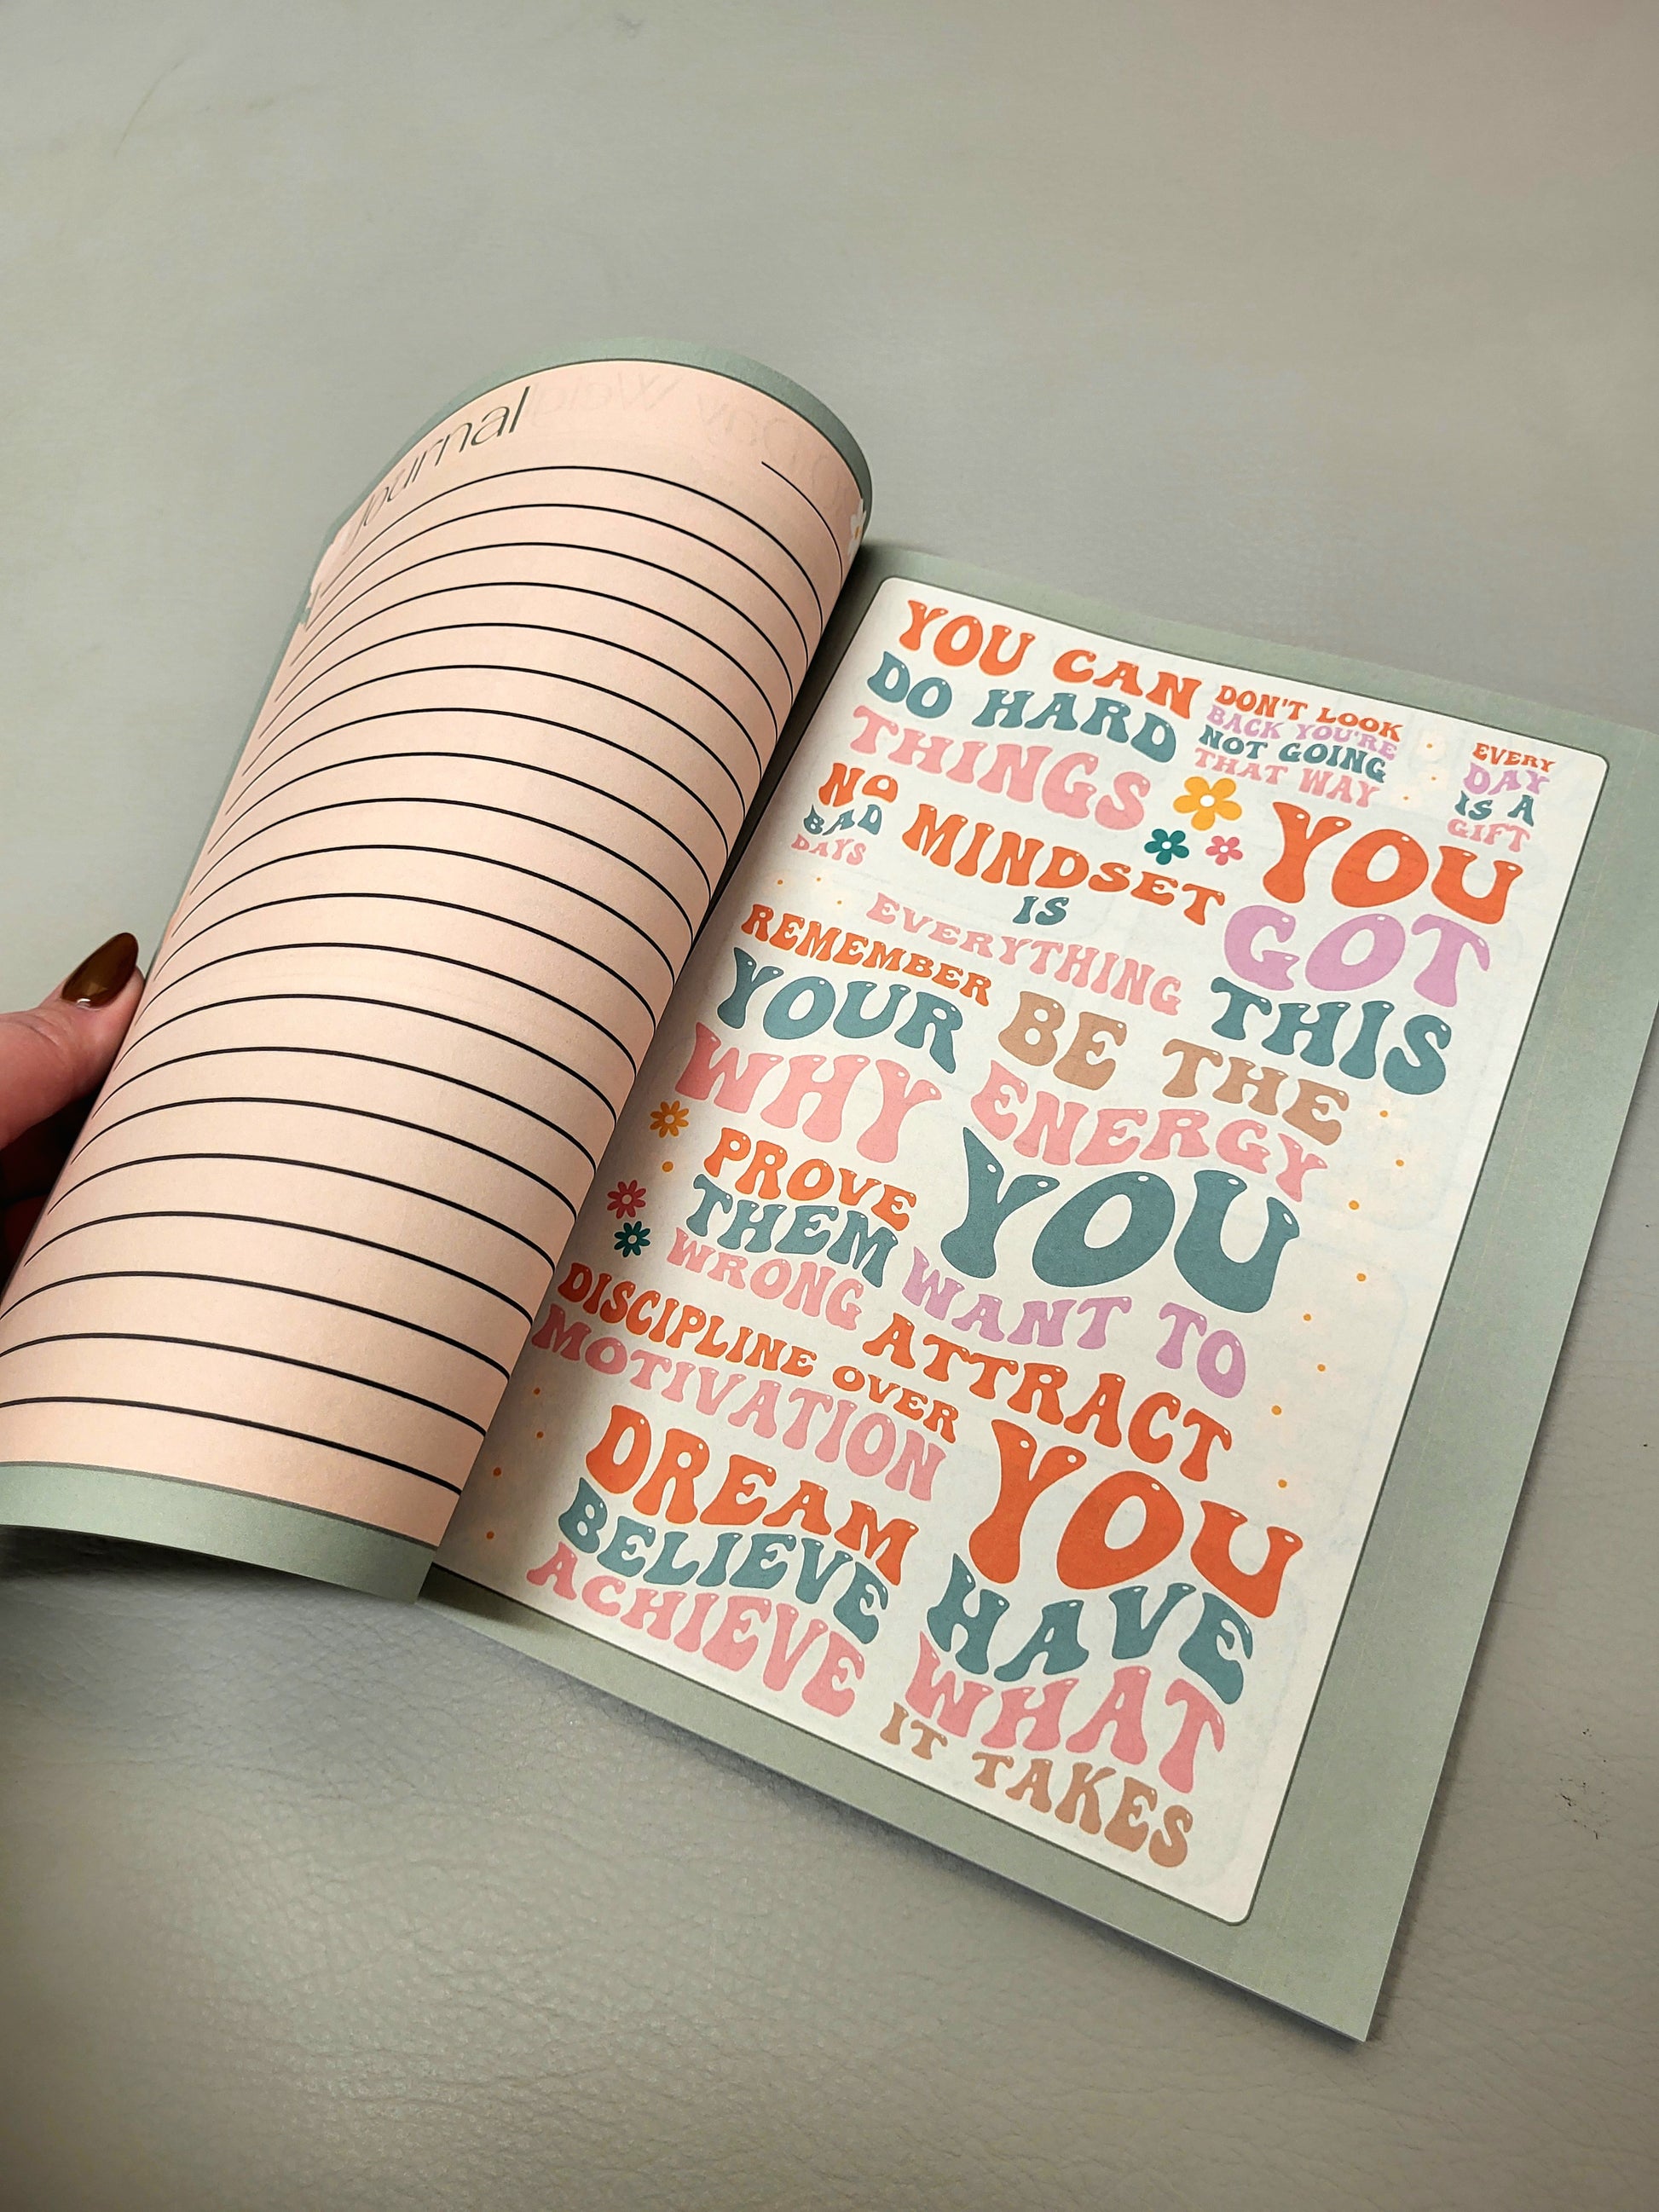 Journal
YOU CAN
DO HARD
THINGS
DON'T LOOK
BACK YOU'RE
NOT GOING
THAT WAY
EVERY
DAY
IS A
GIFT
NO
BAD
DAYS
MINDSET
IS
EVERYTHING
YOU
GOT
THIS
REMEMBER
YOUR
WHY
BE THE
ENERGY
YOU
WANT TO
ATTRACT
PROVE
THEM
WRONG
DISCIPLINE OVER
MOTIVATION
DREAM
BELIEVE
ACHIEVE
YOU
HAVE
WHAT
IT TAKES